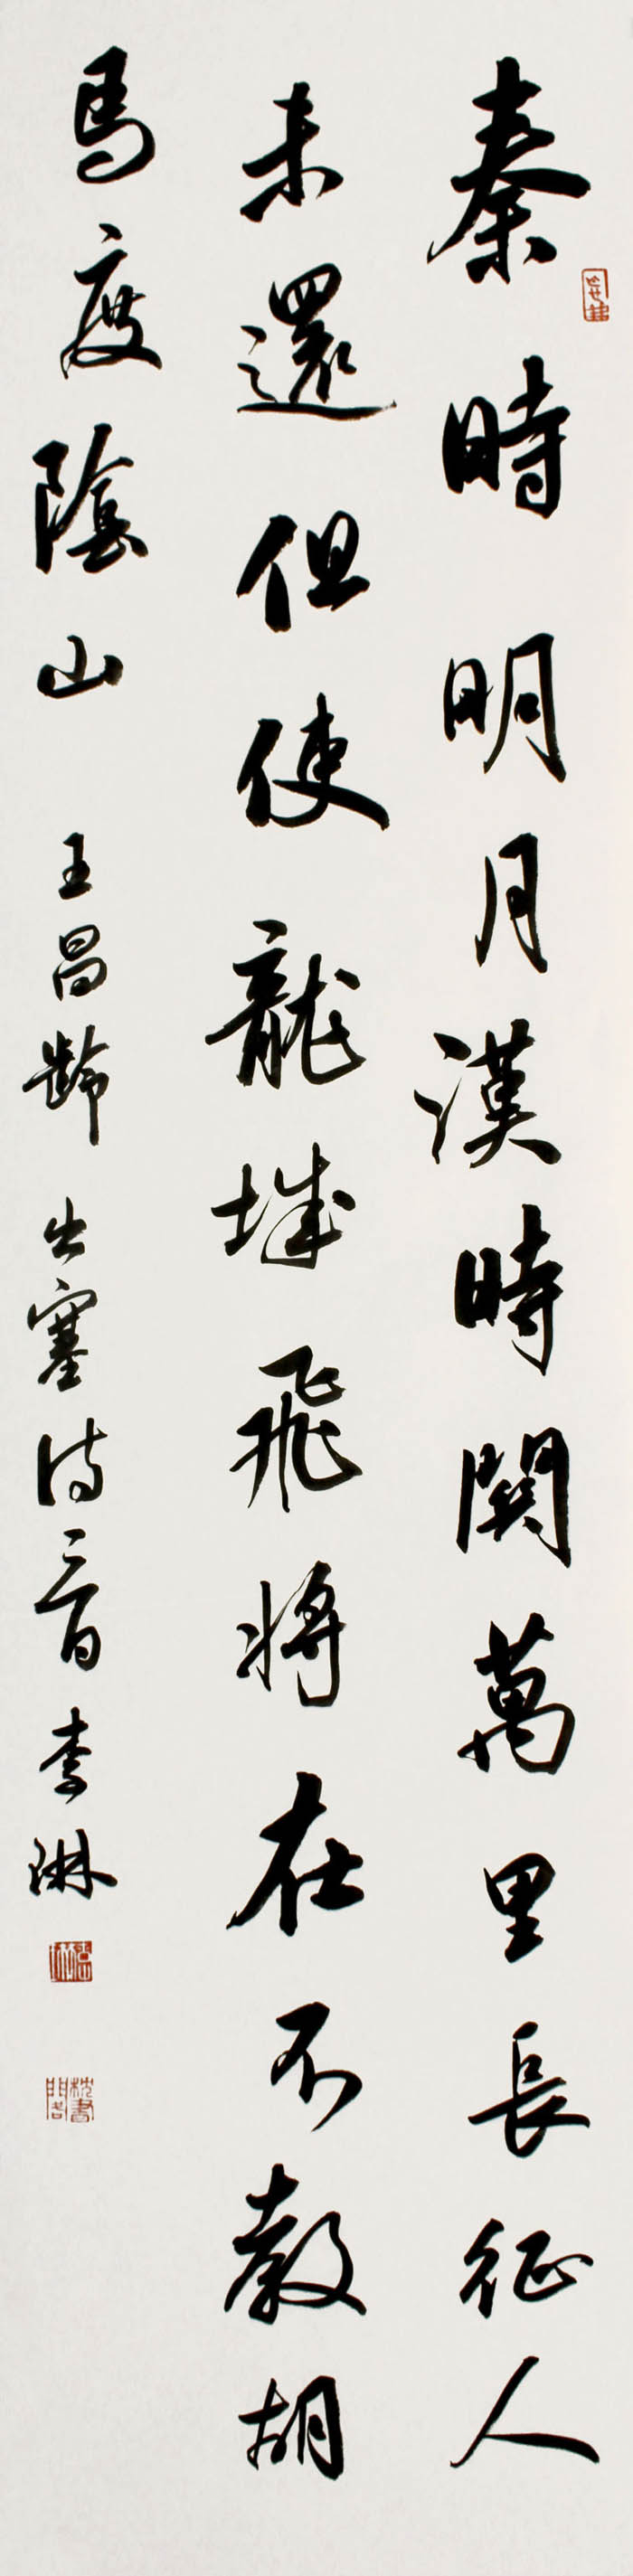 秦時明月漢時關萬里長征人
未還但使龍城飛將在不教胡
馬度陰山
王昌齡 出塞詩一首 李琳